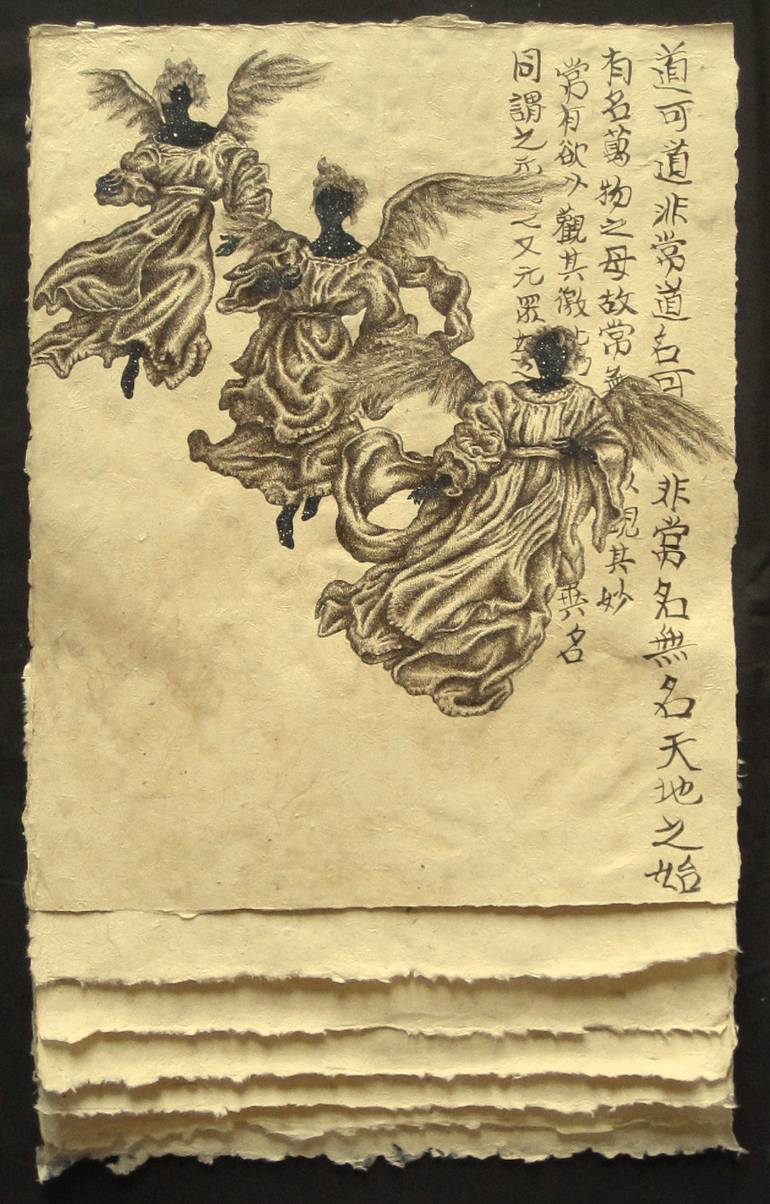 道可道非常道名可非常名無名天地之始
有名萬物之母故常無其妙
常有欲以觀其徼此異名
同謂之元之又元眾妙之